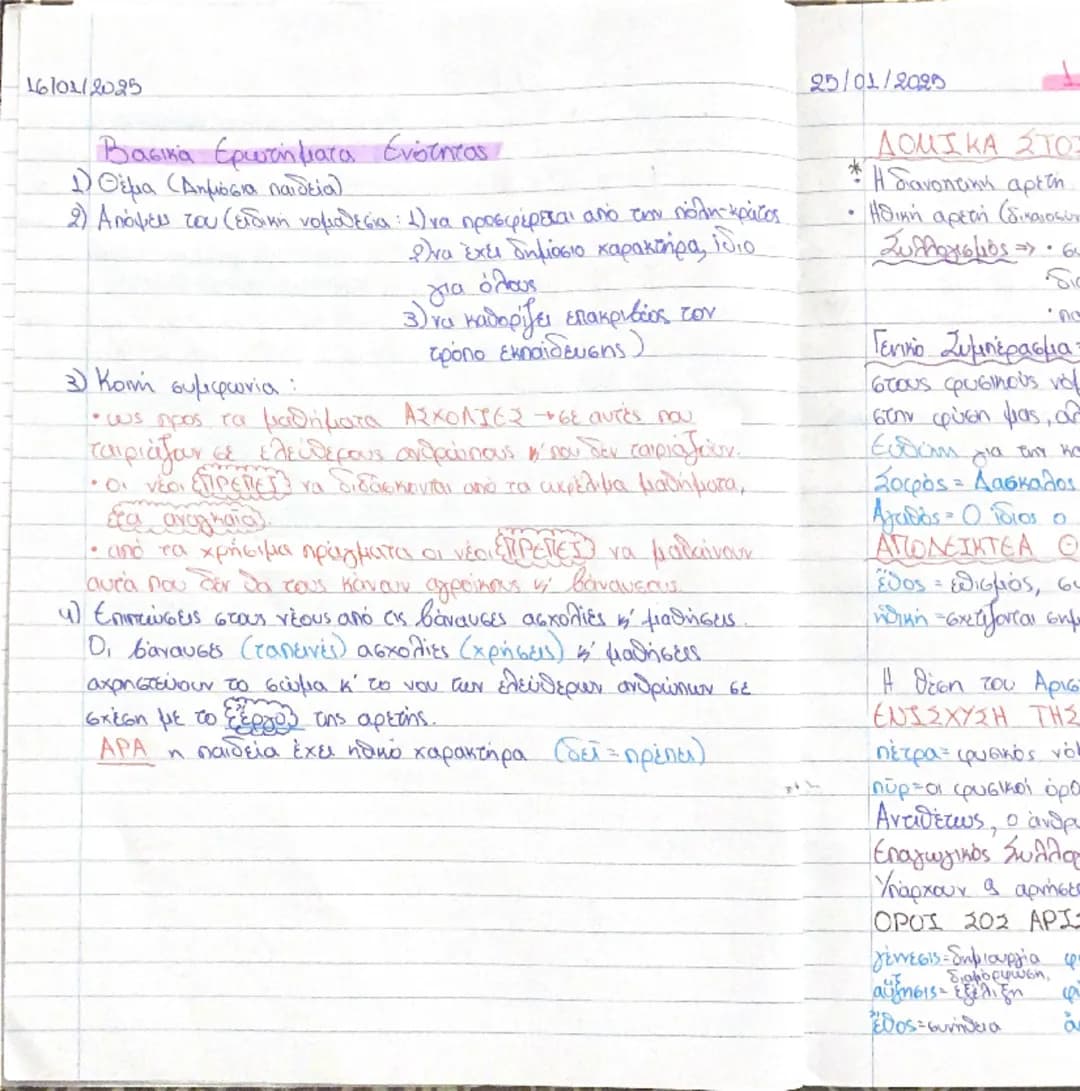 16/01/2025
Βασικά Ερωτήματα Ενότητας
1) Θέμα (Δημόσια παιδεία)
2) Απόψεις του (ειδική νομοθεσία: 1) να προσφέρεται από την πόλη-κράτος
2) να έχει δημόσιο χαρακτήρα, ίδιο
για όλους
3) να καθορίζει επακριβώς τον
τρόπο εκπαίδευσης)
3) Κοινή συμφωνία:
• ως προς τα μαθήματα ΑΣΧΟΛΙΕΣ → σε αυτές που
ταιριάζουν σε ελεύθερους ανθρώπους κ' που δεν ταιριάζουν.
• οι νέοι ΠΡΕΠΕΙ να διδάσκονται από τα ωφέλιμα μαθήματα,
τα αναγκαία.
• από τα χρήσιμα πράγματα οι νέοι ΠΡΕΠΕΙ να μαθαίνουν
αυτά που δεν θα τους κάνουν αγροίκους κ' βάναυσους
4) Επιπτώσεις στους νέους από τις βάναυσες ασχολίες κ' μαθήσεις.
Οι βάναυσες (ταπεινές) ασχολίες (χρήσεις) κ' μαθήσεις
αχρηστεύουν το σώμα κ' το νου των ελεύθερων ανθρώπων σε
σχέση με το έργο της αρετής.
ΑΡΑ η παιδεία έχει ηθικό χαρακτήρα (δεῖ = πρέπει)
25/01/2025
ΔΟΜΙΚΑ ΣΤΟΙ
* Η διανοητική αρετή
• Ηθική αρετή (δικαιοσύν
Συλλογισμός => •
δια
Γενικό Συμπέρασμα:
στους φυσικούς νόμ
στην φύση μας, αλ
Ευθύνη για την κα
Σοφός = Δάσκαλος
Αγαθός = Ο ίδιος ο
ΑΠΟΔΕΙΚΤΕΑ Θ
ἔθος = εθισμός, συ
ηθική = σχετίζονται σημ
Η θέση του Αρισ
ΕΝΙΣΧΥΣΗ ΤΗΣ
πέτρα = φυσικός νόμ
πῦρ = οι φυσικοί όρο
Αντιθέτως, ο άνθρ
Επαγωγικός Συλλογ
Υπάρχουν 2 αρνήσε
ΟΡΟΙ ΣΟΣ ΑΡΙΣ
γένεσις = δημιουργία φ
διαμόρφωση,
αὔξησις = εξέλιξη φ
ἔθος = συνήθεια ἀ